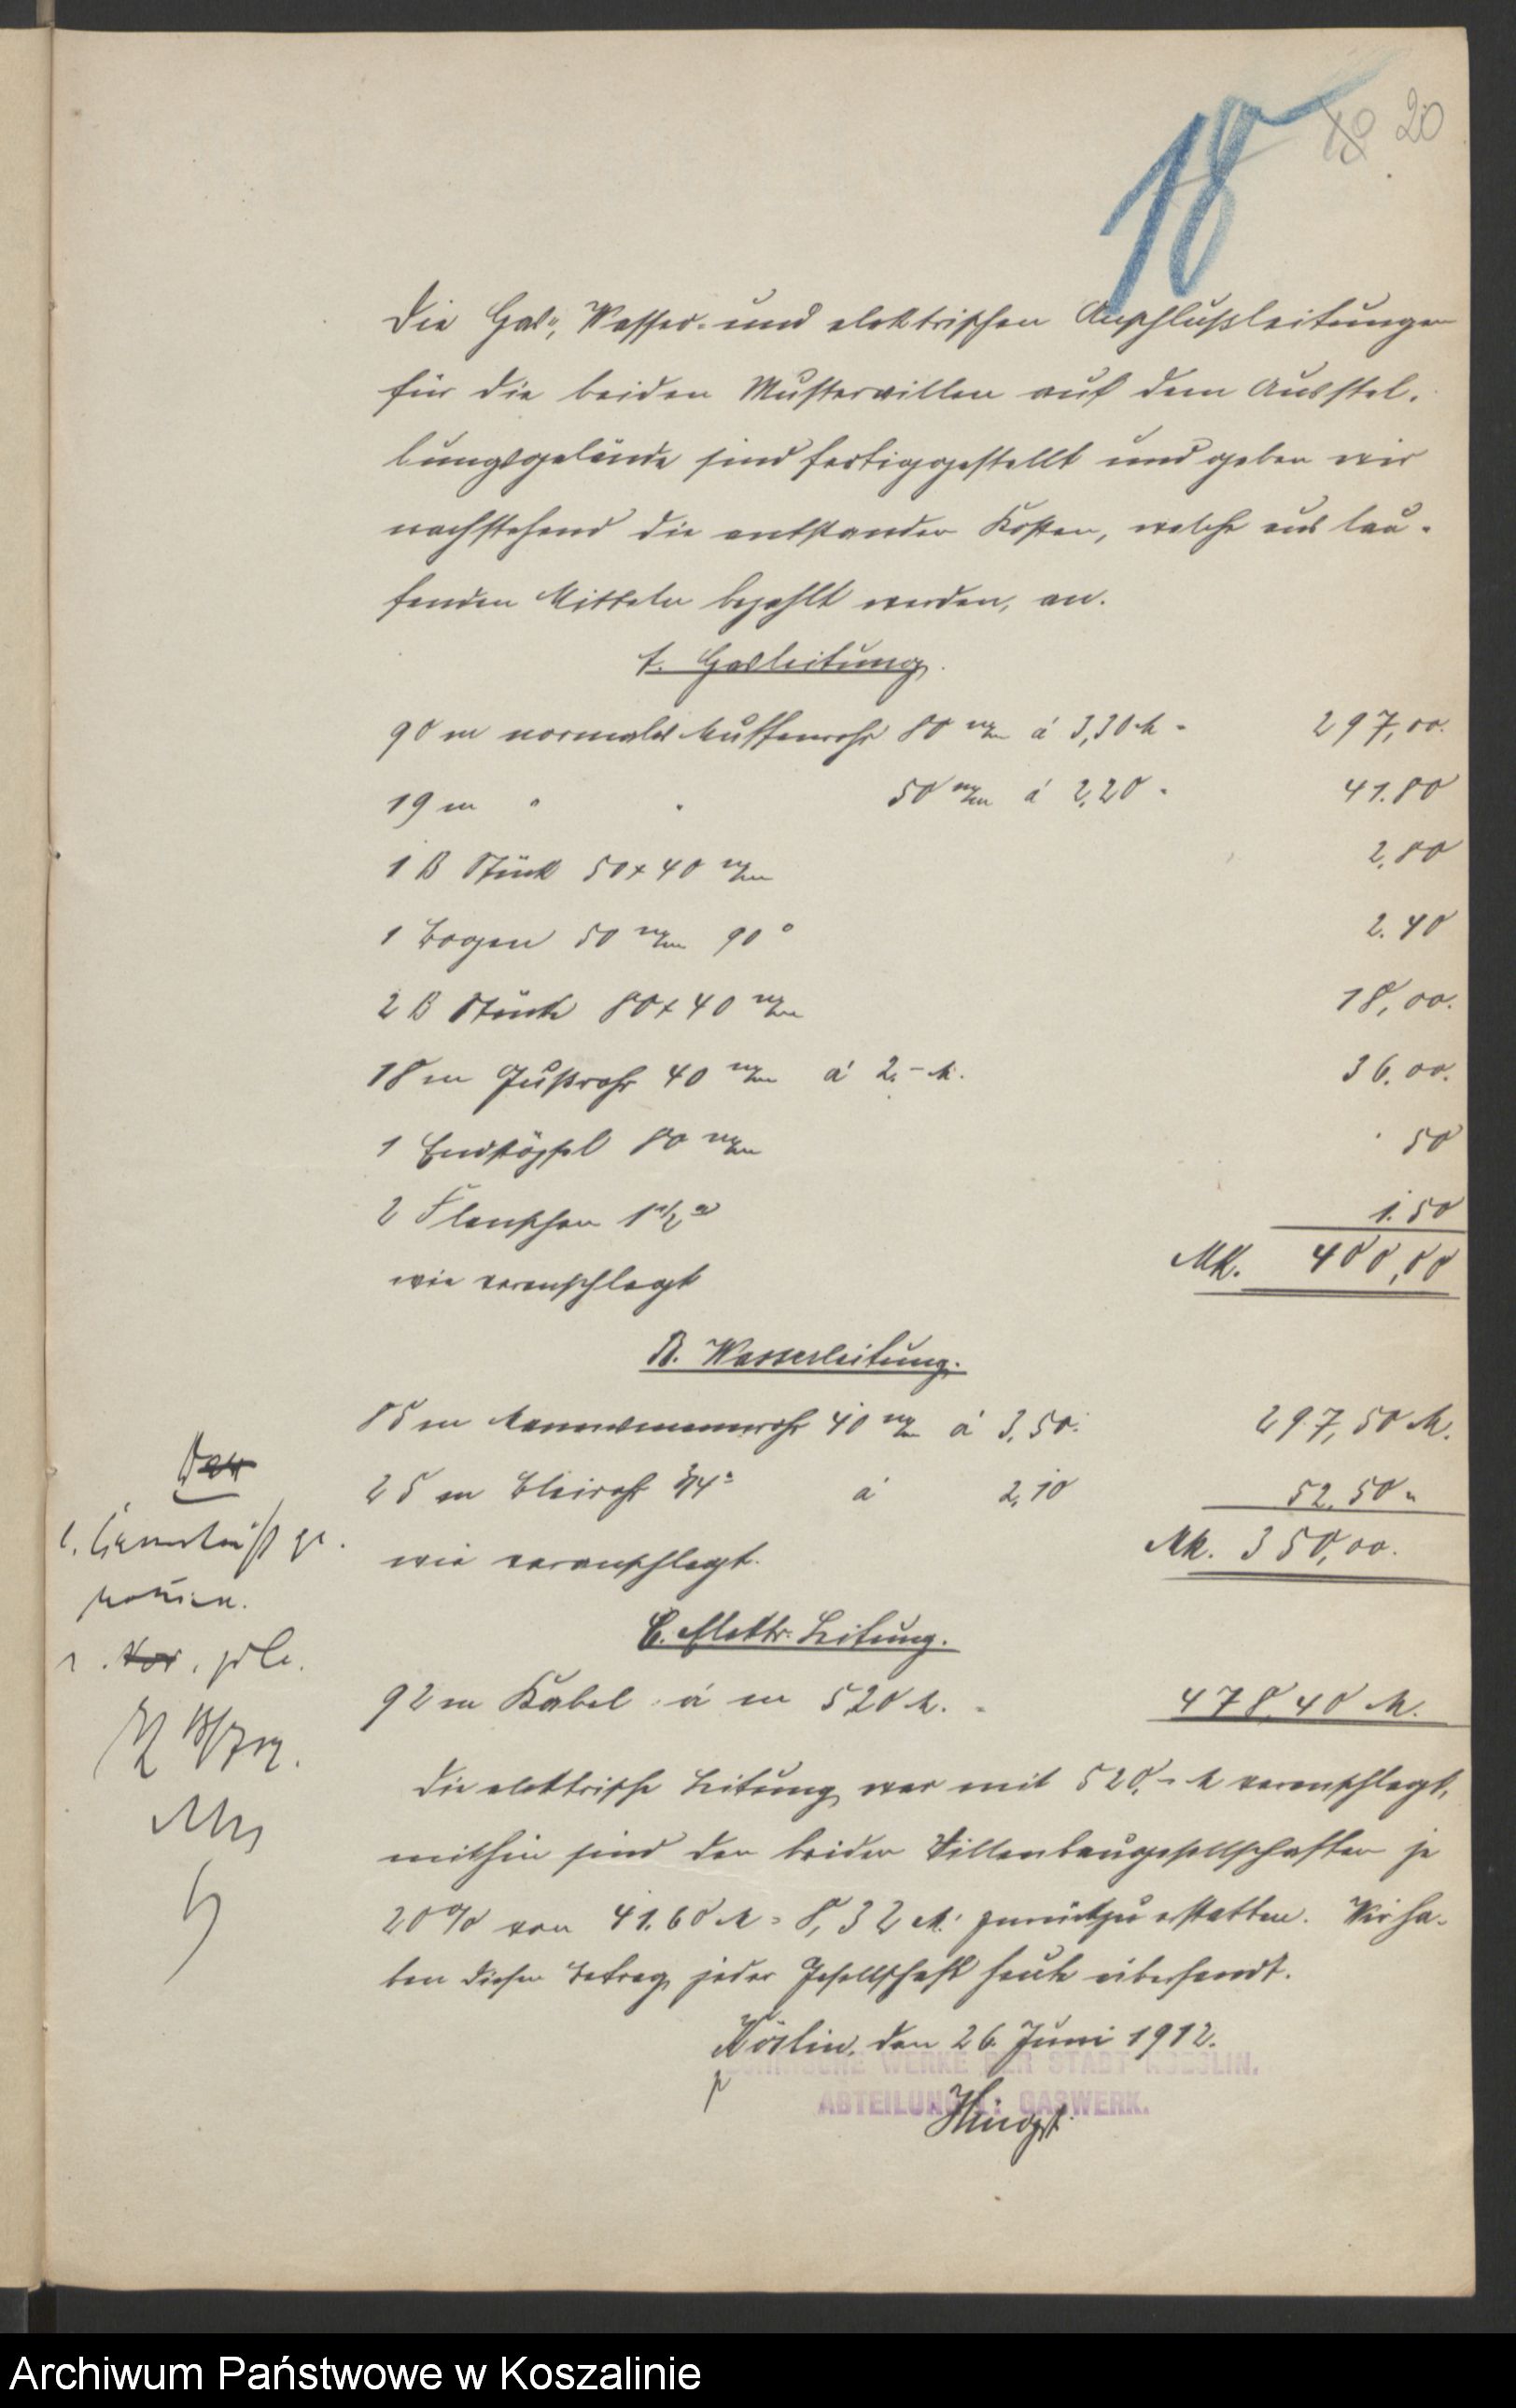 18
18 20
Die Gas-, Wasser- und elektrischen Anschlußleitungen
für die beiden Mustervillen auf dem Ausstel-
lungsgelände sind fertiggestellt und geben wir
nachstehend die entstanden Kosten, welche aus lau-
fenden Mitteln bezahlt werden, an.
A. Gasleitung.
90 m normales Muffenrohr 80 m/m á 3,30 M = 297,00.
19 m " " 50 m/m á 2,20 = 41.80
1 B Stück 50 x 40 m/m 2,80
1 Bogen 50 m/m 90° 2.40
2 B Stück 80 x 40 m/m 18,00.
18 m Gußrohr 40 m/m á 2,- M. 36,00.
1 Endstöpsel 80 m/m 50
2 Flanschen 1 1/2" 1.50
wie veranschlagt Mk. 400,00
B. Wasserleitung.
85 m Mannesmannrohr 40 m/m á 3,50. 297,50 M.
25 m Bleirohr 3/4" á 2,10 52,50 "
wie veranschlagt. Mk. 350,00.
C. Elektr. Leitung.
92 m Kabel á m 5,20 M. = 478,40 M.
Die elektrische Leitung war mit 520,- M veranschlagt,
mithin sind den beiden Villenbaugesellschaften je
20% von 41.60 M = 8,32 M. zurückzu erstatten. Wir ha-
ben diesen Betrag jeder Gesellschaft heute übersandt.
Köslin, den 26. Juni 1912.
WERKE DER STADT KOESLIN.
ABTEILUNG : GASWERK.
Hingst.
1. Kenntniß ge-
nommen.
Archiwum Państwowe w Koszalinie